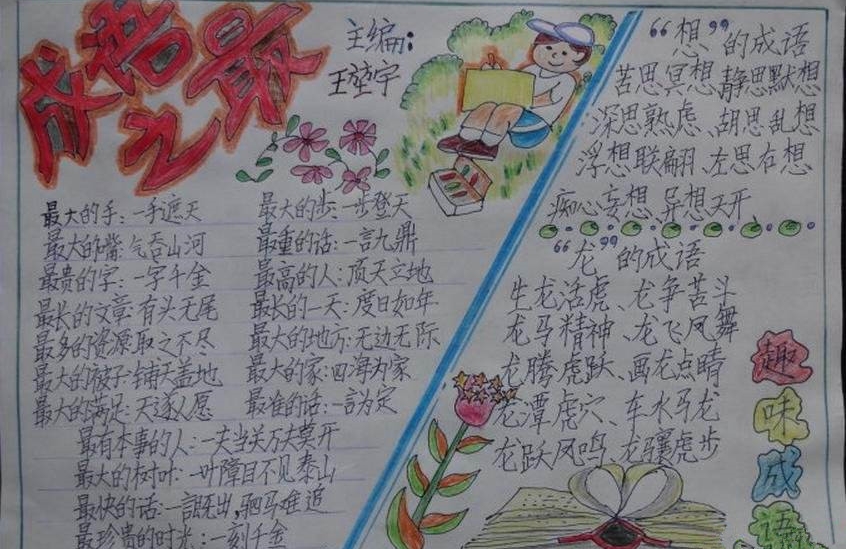 成语之最
主编:
王堃宇
最大的手:一手遮天
最大的嘴:气吞山河
最贵的字:一字千金
最长的文章:有头无尾
最多的资源取之不尽
最大的被子铺天盖地
最大的满足:天遂人愿
最大的步:一步登天
最重的话:一言九鼎
最高的人:顶天立地
最长的一天:度日如年
最大的地方:无边无际
最大的家:四海为家
最准的话:一言为定
最有本事的人:一夫当关万夫莫开
最大的树叶:一叶障目不见泰山
最快的话:一言既出,驷马难追
最珍贵的时光:一刻千金
“想”的成语
苦思冥想、静思默想
深思熟虑、胡思乱想
浮想联翩、左思右想
痴心妄想、异想天开
“龙”的成语
生龙活虎、龙争苦斗
龙马精神、龙飞凤舞
龙腾虎跃、画龙点睛
龙潭虎穴、车水马龙
龙跃凤鸣、龙骧虎步
趣味成语